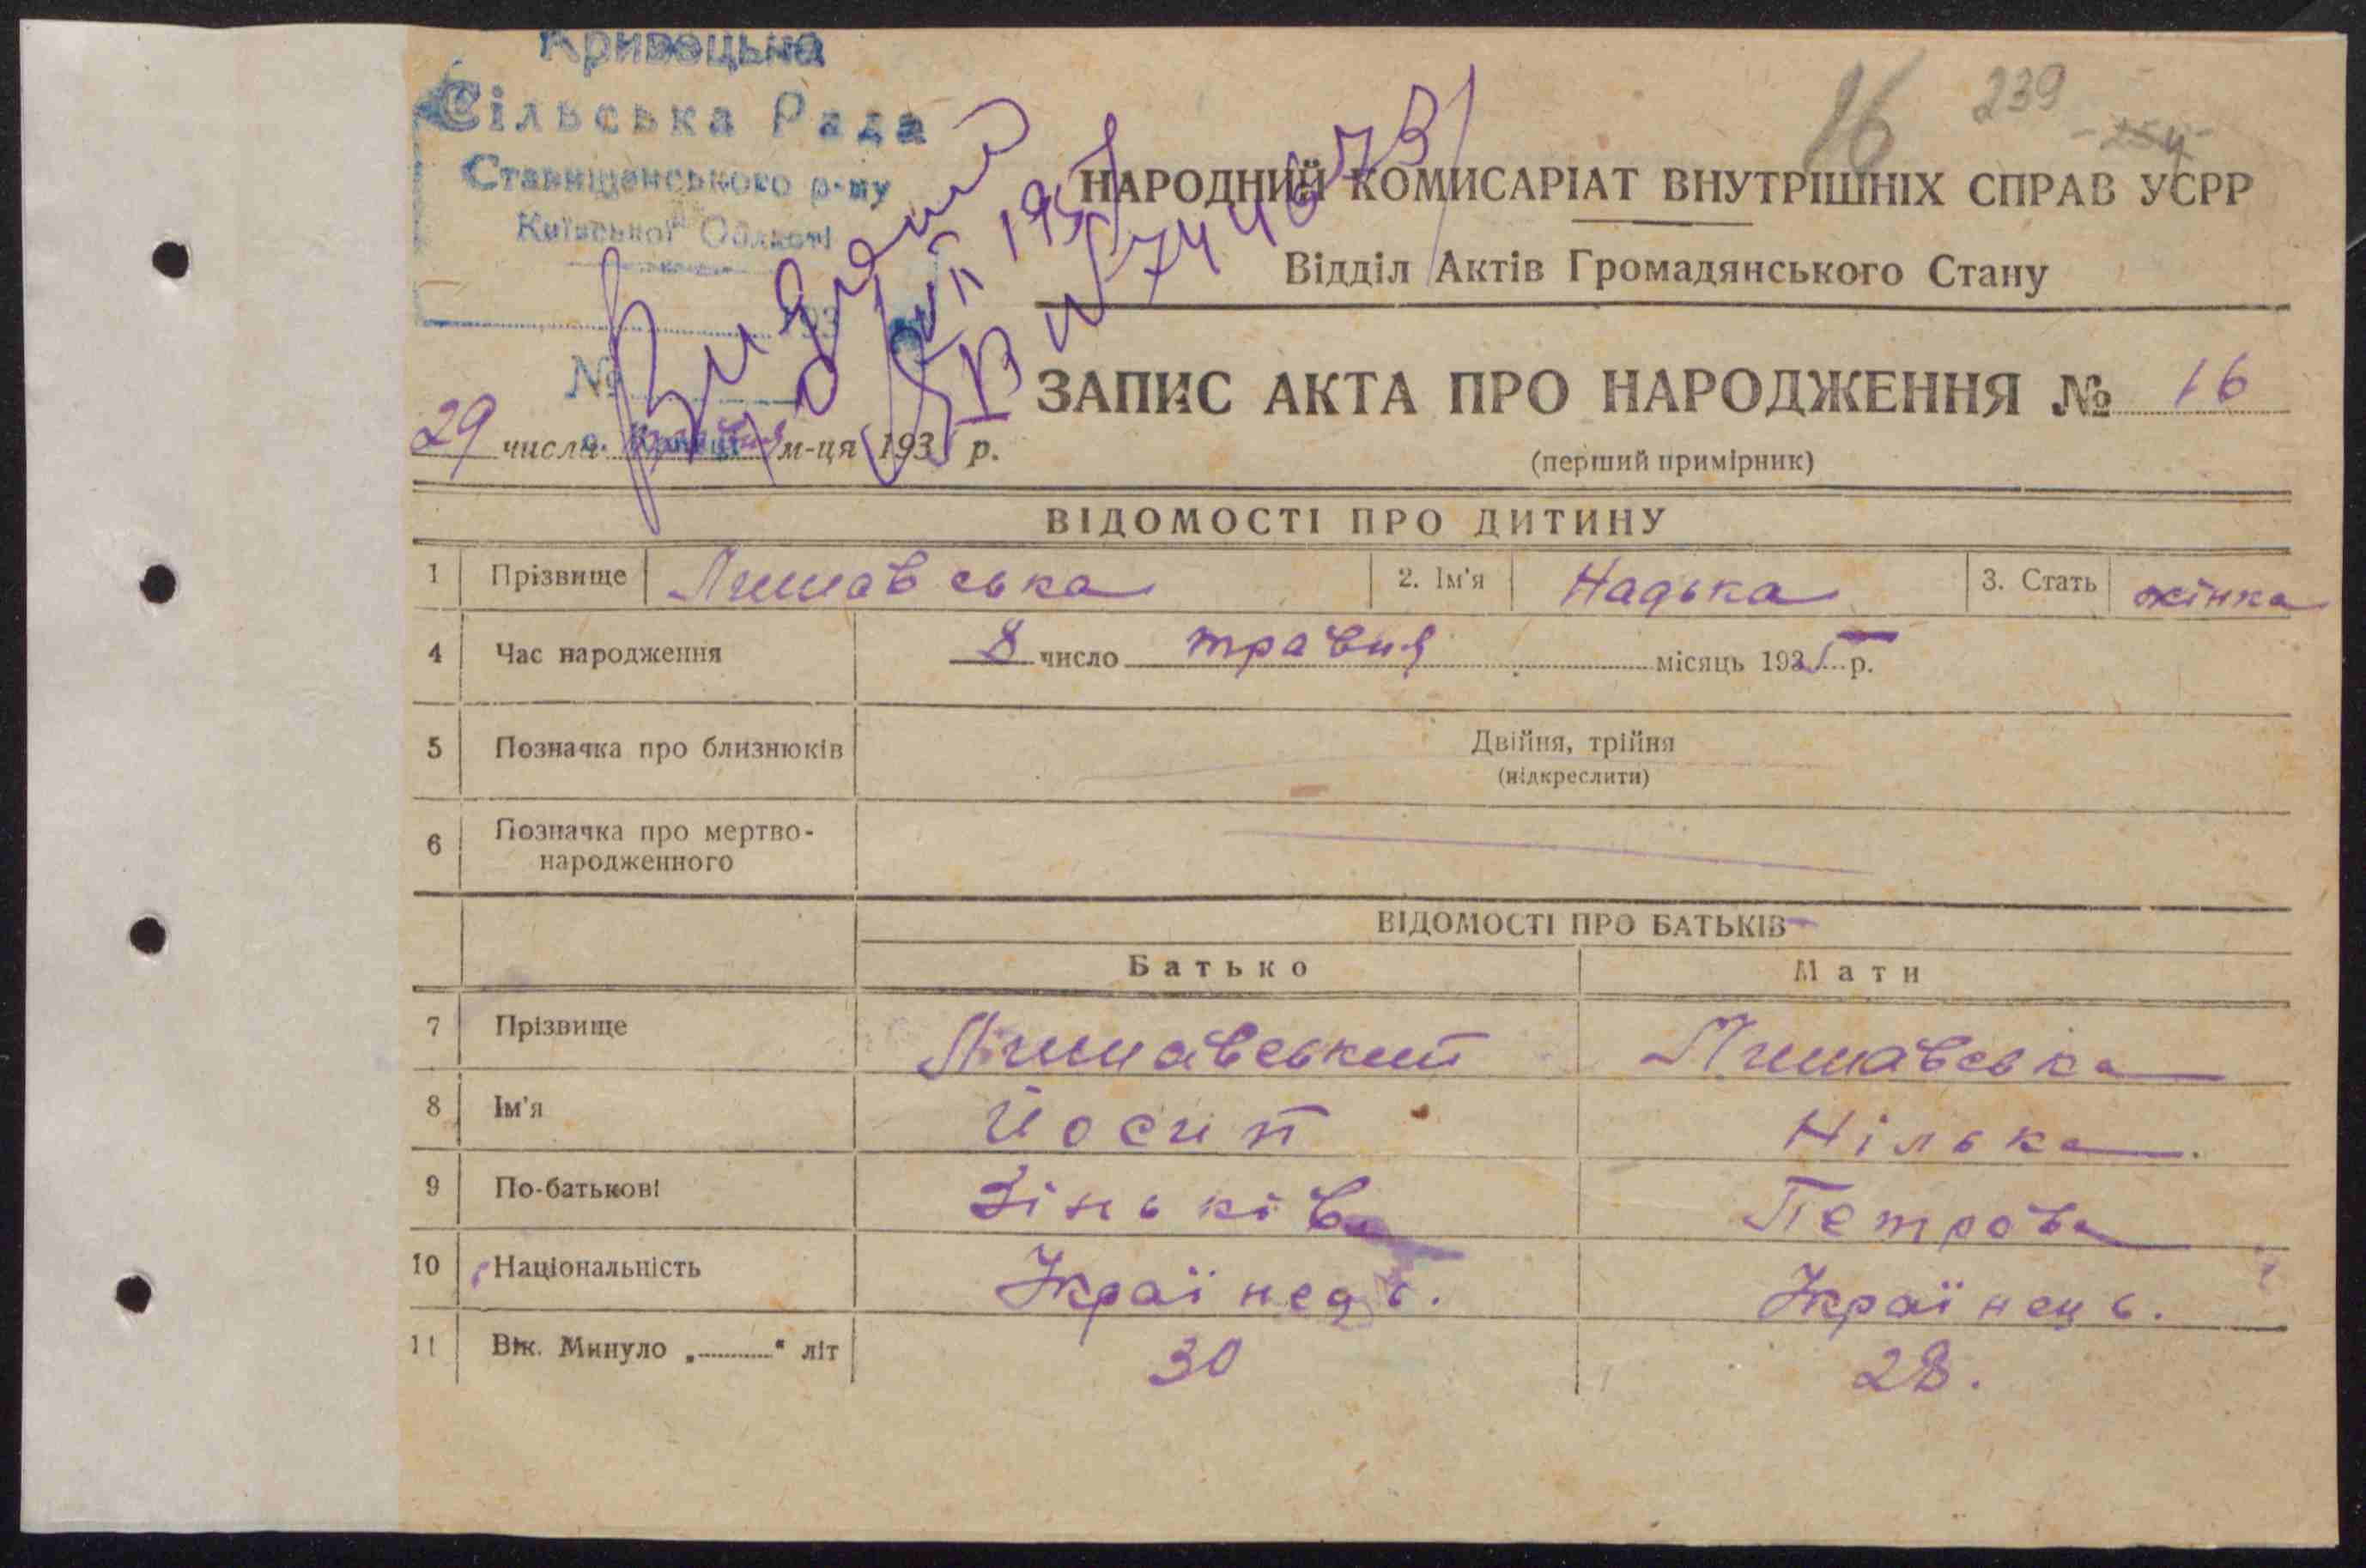 Кривецька
Сільська Рада
Ставищенського р-ну
Київської Области
193
№
16
239
254
Видано
II 195
IВ № 7446731
НАРОДНИЙ КОМИСАРІАТ ВНУТРІШНІХ СПРАВ УСРР
Відділ Актів Громадянського Стану
ЗАПИС АКТА ПРО НАРОДЖЕННЯ № 16
(перший примірник)
29 числа м-ця 1935 р.
ВІДОМОСТІ ПРО ДИТИНУ
1 Прізвище Лишавська 2. Ім'я Надька 3. Стать жінка
4 Час народження 8 число травня місяць 1935 р.
5 Позначка про близнюків Двійня, трійня
(підкреслити)
6 Позначка про мертво-
народженного
ВІДОМОСТІ ПРО БАТЬКІВ
Батько Мати
7 Прізвище Лишавський Лишавська
8 Ім'я Йосип Нілька
9 По-батькові Зіньків Петрова
10 Національність Українець. Українець.
11 Вік. Минуло „ “ літ 30 28.